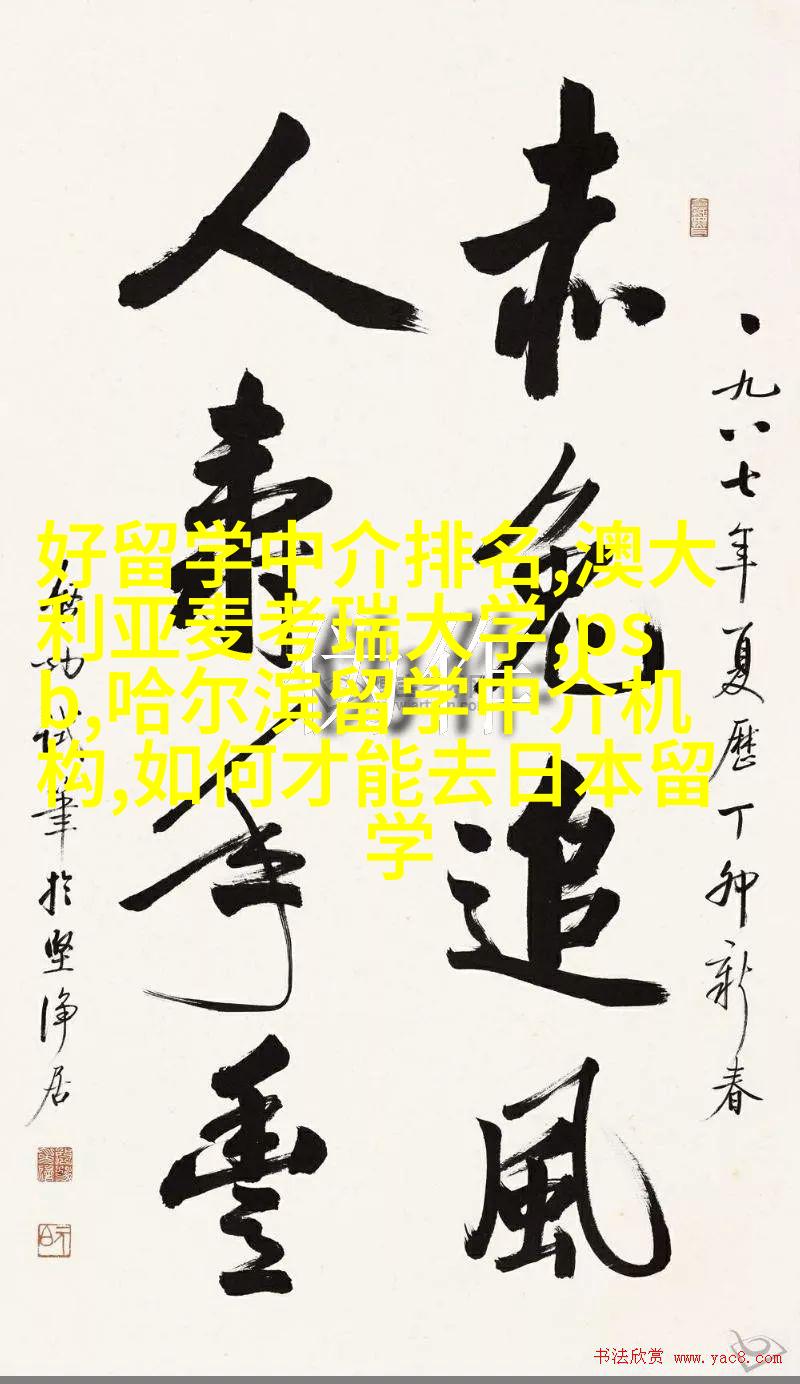 一九八七年夏歷丁卯新春
赤兔追風
人壽年豐
啟功試筆於堅淨居
好留学中介排名,澳大
利亚麦考瑞大学,ps
b,哈尔滨留学中介机
构,如何才能去日本留
学
书法欣赏 www.yac8.com